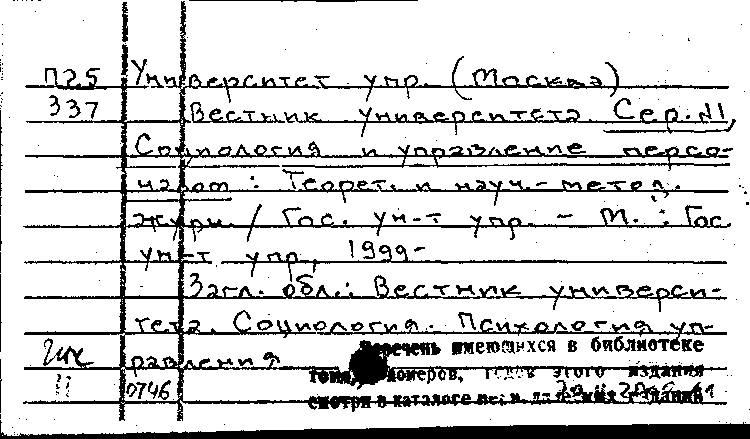 П25 Университет упр. (Москва)
337 Вестник университета. Сер. №1,
Социология и управление персо-
налом : Теорет. и науч.-метод.
журн. / Гос. ун-т упр. - М. : Гос.
ун-т упр., 1999-
Загл. обл.: Вестник универси-
тета. Социология. Психология уп-
равления
Перечень имеющихся в библиотеке
томов, номеров, годов этого издания
смотри в каталоге
0746